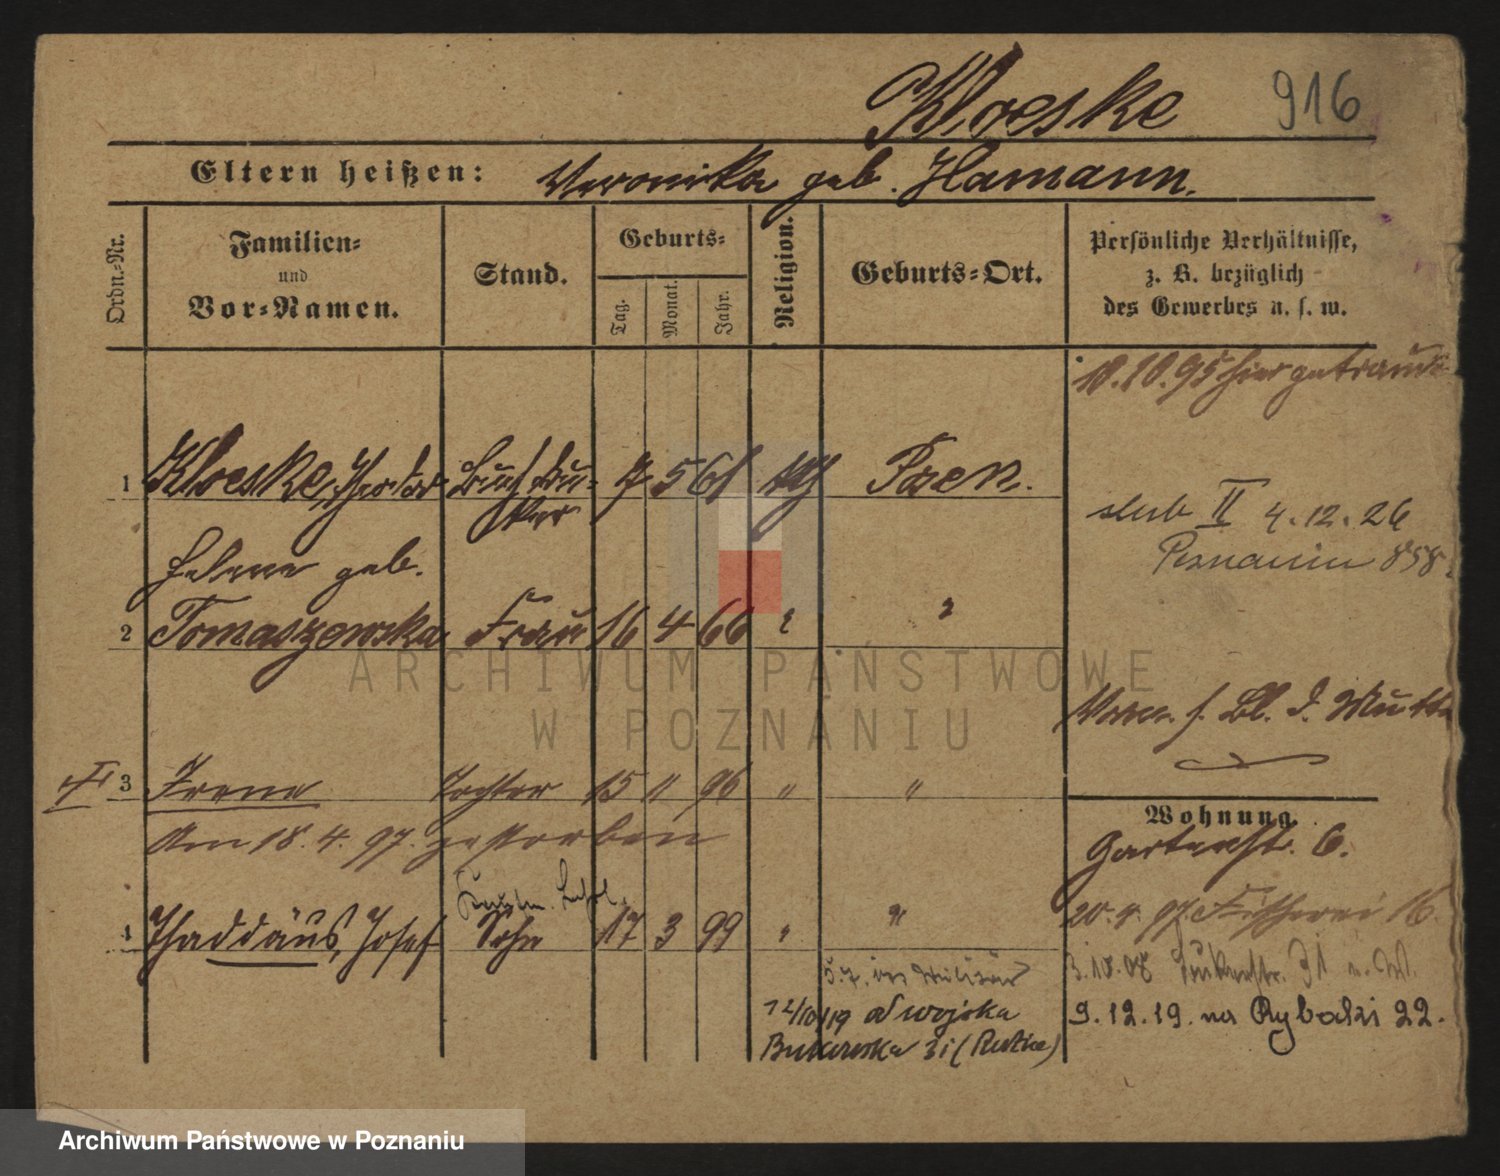 Kloeske 916
Eltern heißen: Veronika geb. Hamann.
Ordn.-Nr.
Familien-
und
Vor-Namen.
Stand.
Geburts-
Tag.
Monat.
Jahr.
Religion.
Geburts-Ort.
Persönliche Verhältnisse,
z. B. bezüglich
des Gewerbes u. s. w.
10.10.95 hier getraut
1 Kloeske, Theodor Buchdru-
cker 7 5 61 kth Posen.
slub II 4.12.26
Poznaniu 858
Helene geb.
2 Tomaszewska Frau 16 4 66 " "
f. Bl. d. Mutter
3 Irene Tochter 15 11 96 " "
am 18.4.97. gestorben
Wohnung.
Gartenstr. 6.
4 Thaddäus, Josef Sohn 17 3 99 " "
20.4.97 Fischerei 16.
5.7. Militär
3.10.08 31
12/10/19 od wojska
9.12.19. na Rybaki 22.
Bukerska 31
ARCHIWUM PAŃSTWOWE
W POZNANIU
Archiwum Państwowe w Poznaniu